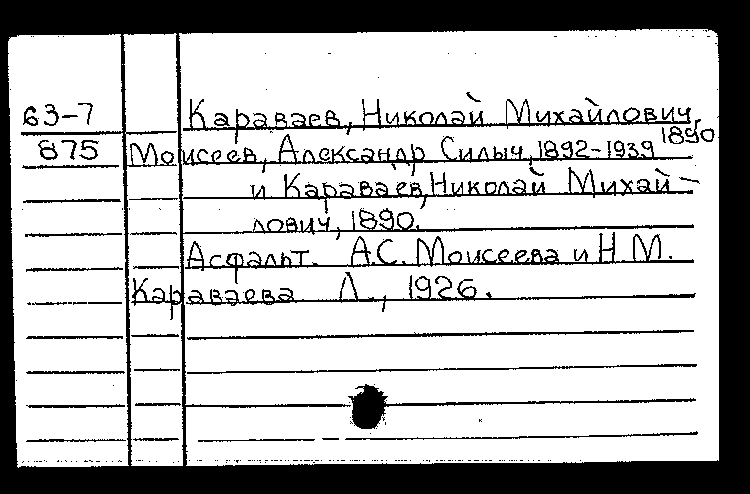 63-7 Караваев, Николай Михайлович, 1890
875 Моисеев, Александр Силыч, 1892-1939
и Караваев, Николай Михай-
лович, 1890.
Асфальт. А.С. Моисеева и Н.М.
Караваева Л., 1926.